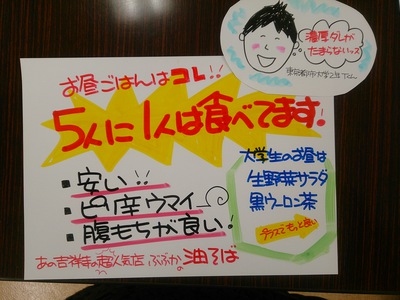 濃厚ダレが
たまらないッス
東京都市大学2年 Tくん
お昼ごはんはコレ!!
5人に1人は食べてます!
・安い!!
・ピリ辛ウマイ
・腹もちが良い!
大学生のお昼は
生野菜サラダ
黒ウーロン茶
プラスでもっと良い
あの吉祥寺の超人気店 ぶぶかの油そば